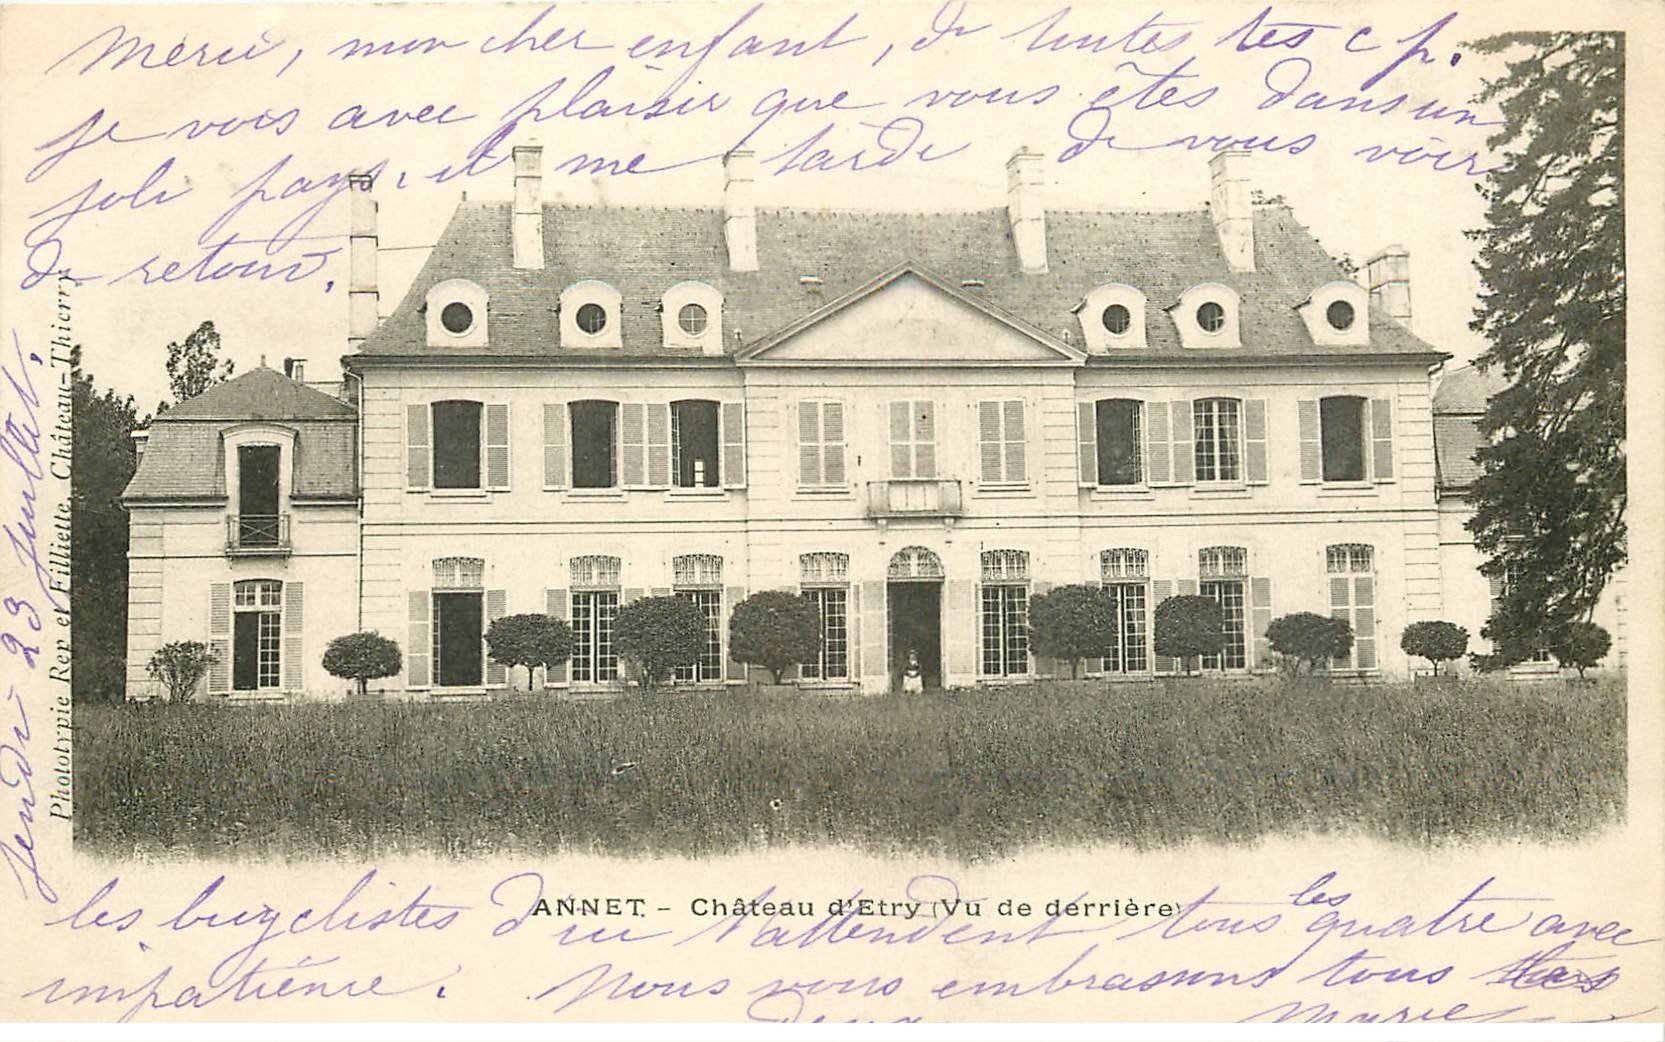 Merci, mon cher enfant, de toutes tes c p.
je vois avec plaisir que vous êtes dans un
joli pays, il me tarde de vous voir
de retour.
Jeudi 23 Juillet.
Phototypie Rep et Filliette, Château-Thierry
ANNET. - Château d'Etry (Vu de derrière)
les bicyclistes d'ici t'attendent tous les quatre avec
impatience. Nous vous embrassons tous
deux Marie